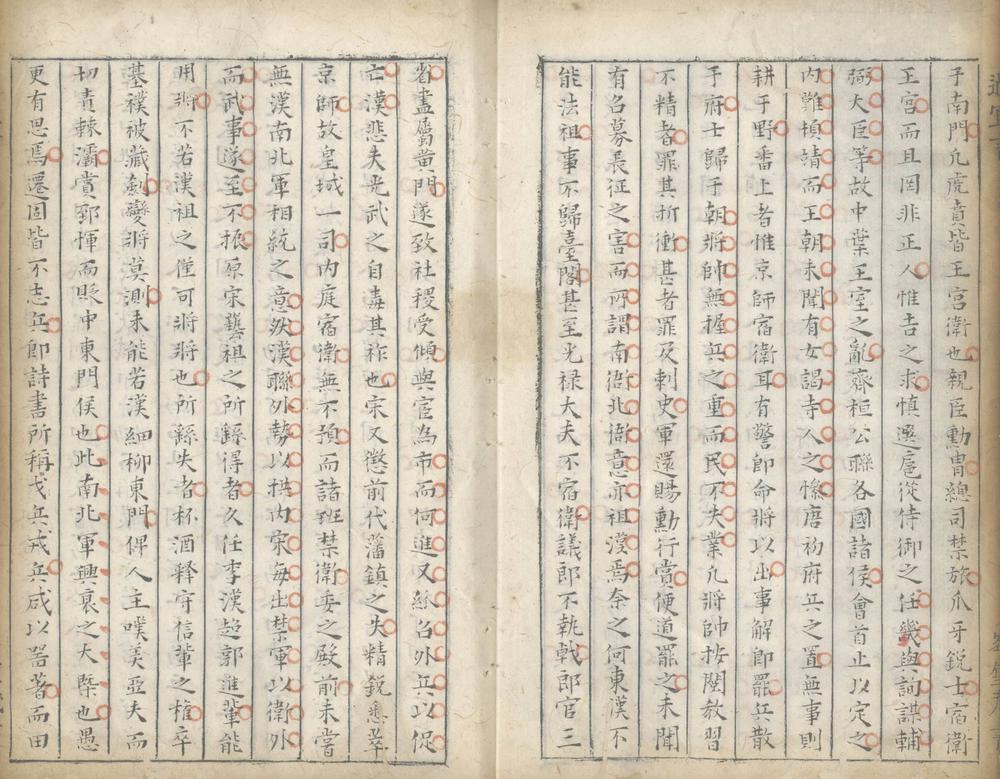 于南門凡虎賁皆王宮衛也親臣勳胄總司禁旅爪牙銳士宿衛
王宮而且罔非正人惟吉之求慎選扈從侍御之任幾與詢謀輔
弼大臣等故中葉王室之亂齊桓公聯各國諸侯會首止以定之
內難頓靖而王朝未聞有女謁寺人之慘唐初府兵之置無事則
耕于野番上者惟京師宿衛耳有警即命將以出事解即罷兵散
于府士歸于朝將帥無握兵之重而民不失業凡將帥按閱教習
不精者罪其折衝甚者罪及刺史軍還賜勳行賞便道罷之未聞
有名募長征之害而所謂南衙北衙意亦祖漢焉奈之何東漢不
能法祖事不歸臺閣甚至光祿大夫不宿衛議郎不執戟郎官三
省盡屬黃門遂致社稷受傾與宦為市而何進又紛召外兵以促
亡漢悲失光武之自毒其祚也宋又懲前代藩鎮之失精銳悉萃
京師故皇城一司內庭宿衛無不預而諸班禁衛委之殿前未嘗
無漢南北軍相統之意然漢聯外勢以拱內宋每出禁軍以衛外
而武事遂至不振原宋藝祖之所繇得者久任李漢超郭進輩能
用將不若漢祖之僅可將將也所繇失者杯酒釋守信輩之權卒
基襆被藏劍變將莫測未能若漢細柳東門俾人主嘆美亞夫而
切責棘灞賞郅惲而貶中東門侯也此南北軍興衰之大槩也愚
更有思焉遷固皆不志兵即詩書所稱戈兵戎兵咸以器著而田